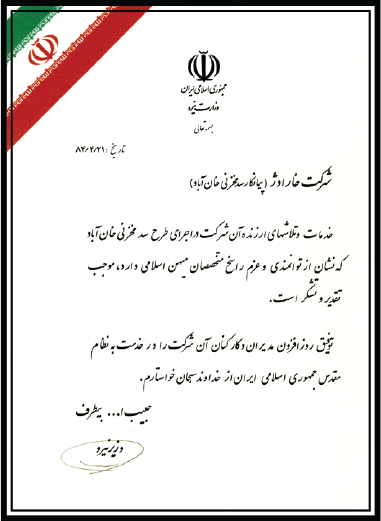 جمهوری اسلامی ایران
وزارت نیرو
بسمه تعالی
تاریخ : ۸۴/۴/۲۱
شرکت خارا دژ (پیمانکار سد مخزنی خان آباد)
خدمات و تلاشهای ارزنده آن شرکت در اجرای طرح سد مخزنی خان آباد
که نشان از توانمندی و عزم راسخ متخصصان میهن اسلامی دارد، موجب
تقدیر و تشکر است.
توفیق روزافزون مدیران و کارکنان آن شرکت را در خدمت به نظام
مقدس جمهوری اسلامی ایران از خداوند سبحان خواستارم.
حبیب ا... بیطرف
وزیر نیرو